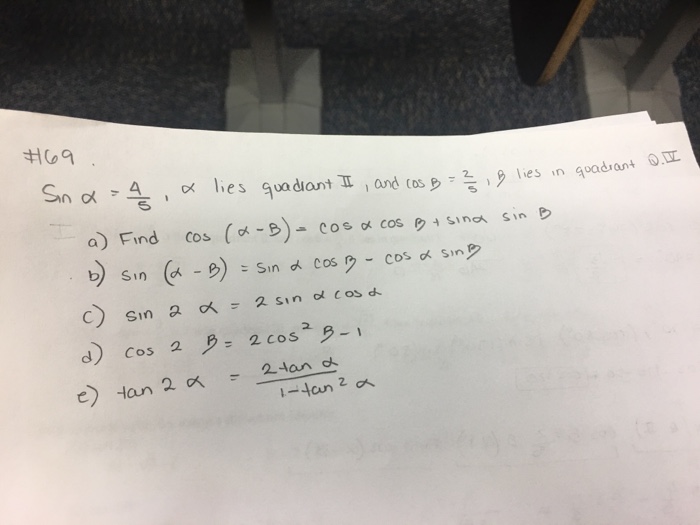 #169.
Sin α = 4/5, α lies quadrant II, and cos β = 2/5, β lies in quadrant Q.IV
a) Find cos (α - β) = cos α cos β + sinα sin β
b) sin (α - β) = sin α cos β - cos α sin β
c) sin 2 α = 2 sin α cos α
d) cos 2 β = 2 cos² β - 1
e) tan 2 α = 2 tan α / 1 - tan² α